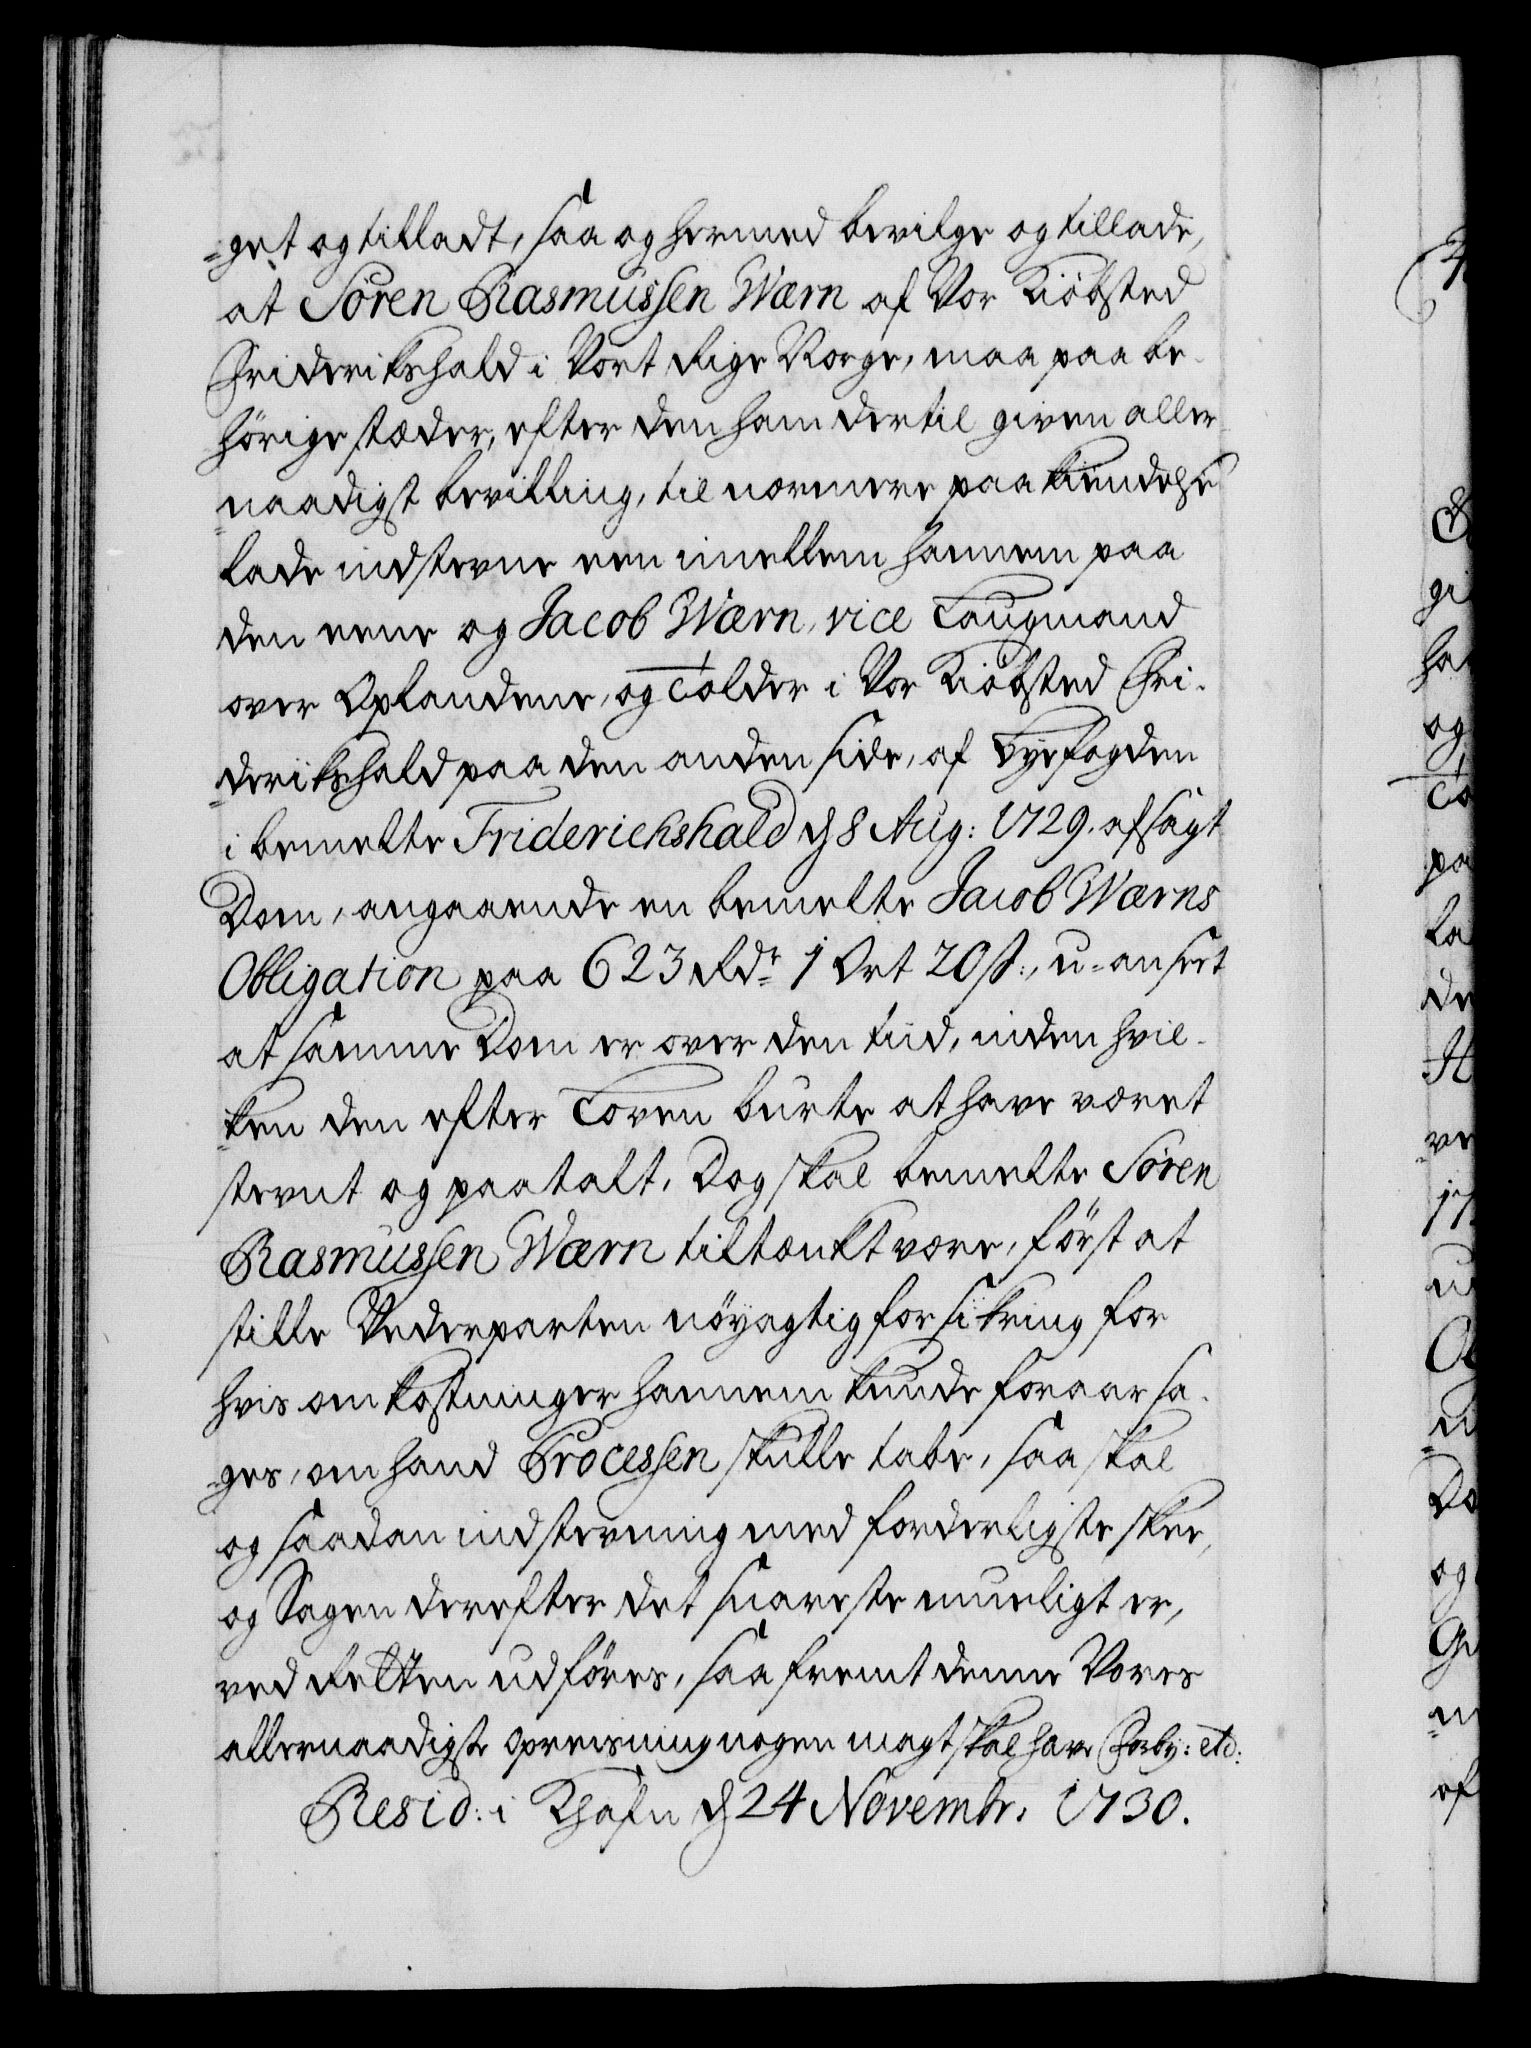 =get og tilladt, saa og hermed bevilge og tillade,
at Sören Rasmussen Wærn af Vor Kiöbsted
Friderikshald i Vort Rige Norge, maa paa be-
hörige stæder, efter den ham dertil given aller-
=naadigst bevilling, til nærmere paakiendelse
lade indstevne een imellem hannem paa
den eene og Jacob Wærn, vice Laugmand
over Oplandene, og Tolder i Vor Kiöbsted Fri-
=derikshald paa den anden side, af Byefogden
i bemelte Friderichshald d 8 Aug: 1729. afsagt
Dom, angaaende en bemelte Jacob Wærns
Obligation paa 623 Rdr 1 Ort 20 s:, u-anseet
at samme Dom er over den tiid, inden hvil-
=ken den efter Loven burte at have været
stevnt og paatalt, Dog skal bemelte Sören
Rasmussen Wærn tiltænkt være, först at
stille Vederparten nöyagtig forsikring for
hvis omkostninger hannem kunde foraarsa-
=ges, om hand Processen skulle tabe, saa skal
og saadan indstevning med forderligste skee,
og Sagen derefter det snareste mueligt er,
ved Retten udföres, saafremt denne Vores
allernaadigste opreisning nogen magt skal have Forby: etc:
Resid: i Khafn d 24 Novembr. 1730.